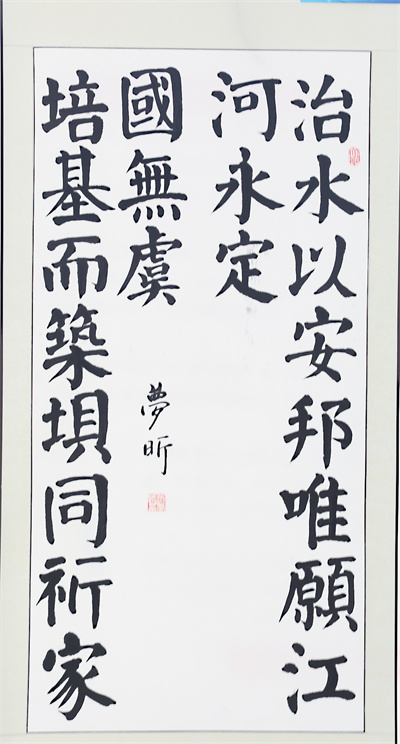 治水以安邦唯願江
河永定
培基而築垻同祈家
國無虞
夢昕